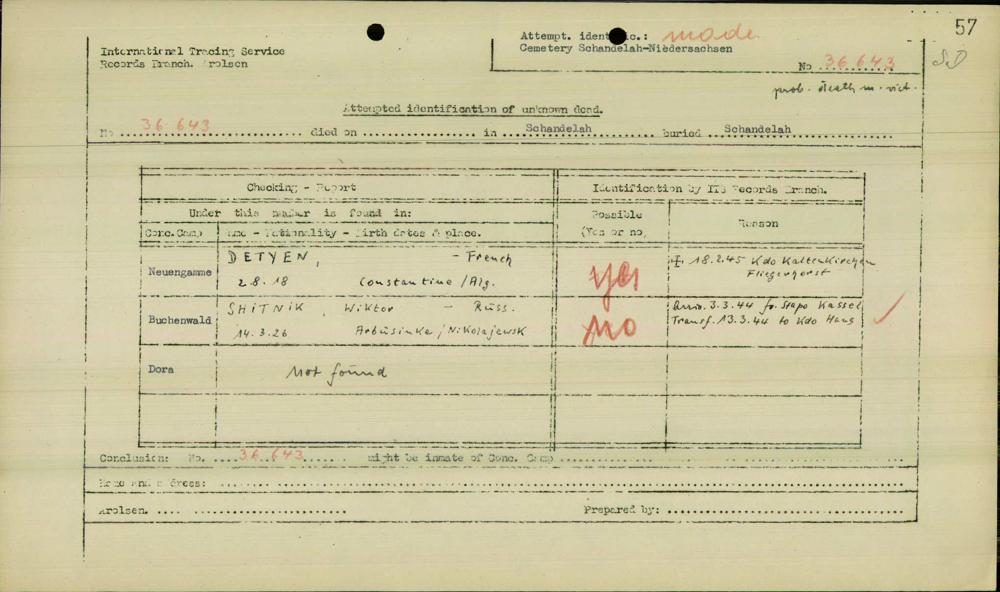 57
International Tracing Service
Records Branch. Arolsen
Attempt. identific.: made
Cemetery Schandelah-Niedersachsen
No 36.643
prob. death m. vict.
Attempted identification of unknown dead.
No 36 643 died on in Schandelah buried Schandelah
Checking - Report
Identification by ITS Records Branch.
Under this number is found in:
Possible
(Yes or no)
Reason
Conc.Camp
Name - Nationality - Birth dates & place.
Neuengamme
DETYEN, - French
2.8.18 Constantine/Alg.
yes
18.2.45 Kdo Kaltenkirchen
Fliegerhorst
Buchenwald
SHITNIK, Wiktor - Russ.
14.3.26 Arbusinka/Nikolajewsk
no
Arriv. 3.3.44 fr. Stapo Kassel
Transf. 13.3.44 to Kdo Hans
Dora
Not found
Conclusion: No. 36.643 might be inmate of Conc. Camp
Name and address:
Arolsen.
Prepared by: